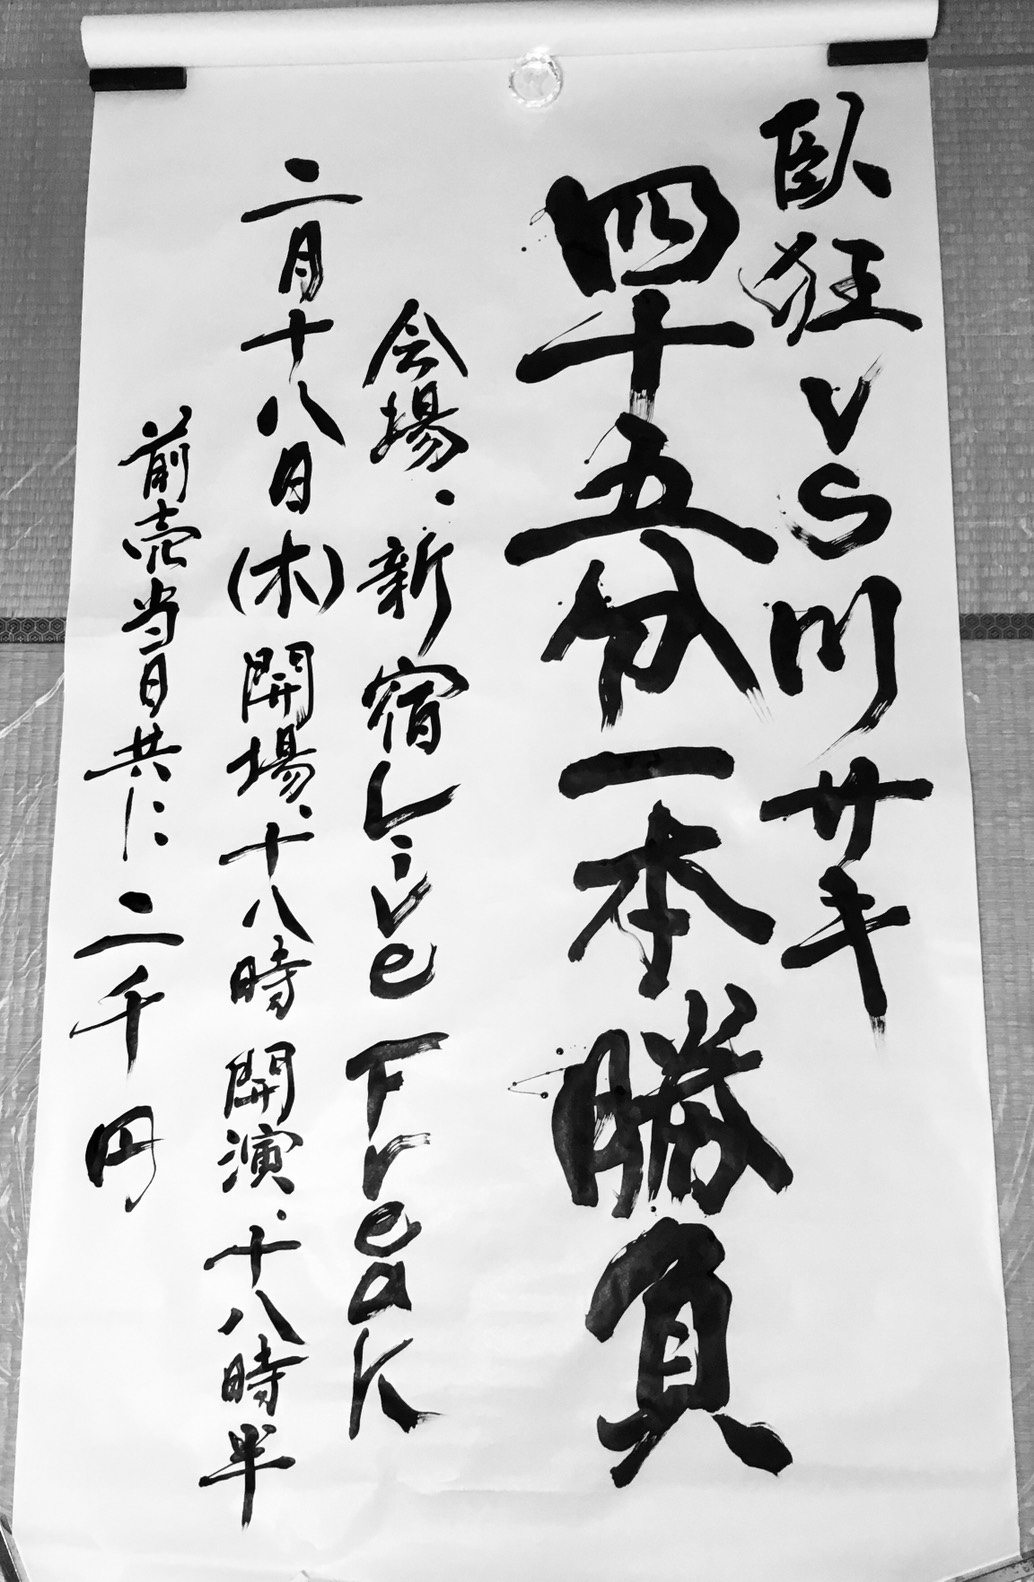 臥狂vs川サキ
四十五分一本勝負
会場、新宿Live Freak
二月十八日(木)開場、十八時 開演、十八時半
前売当日共に 二千円